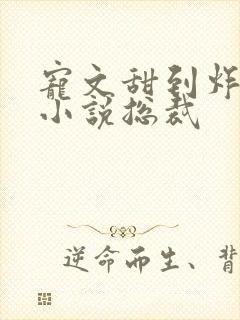 寵文甜到炸
小說总裁
逆命而生、背